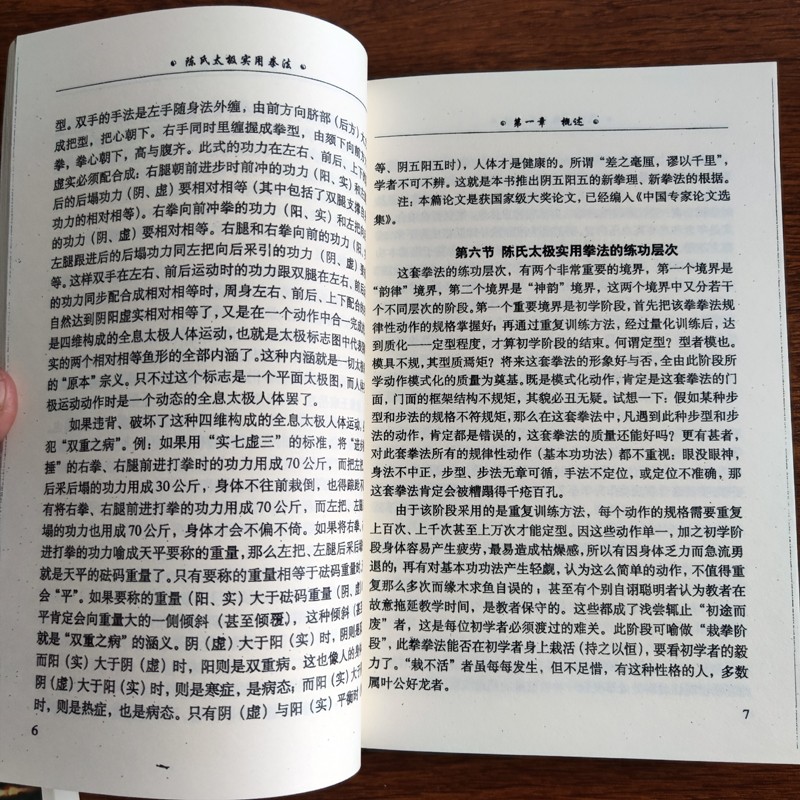 陈氏太极实用拳法
型。双手的手法是左手随身法外缠，由前方向脐部（后方）
成把型，把心朝下。右手同时里缠握成拳型，由颏下向前方
拳，拳心朝下，高与腹齐。此式的功力在左右、前后、上下
虚实必须配合成：右腿朝前进步时前冲的功力（阳、实）和
后的后塌功力（阴、虚）要相对相等（其中包括了双腿支撑
功力的相对相等）。右拳向前冲拳的功力（阳、实）和左把
的功力（阴、虚）要相对相等。右腿和右拳向前的功力（阳、
左腿跟进后的后塌功力同左把向后采引的功力（阴、虚）
等。这样双手在左右、前后运动时的功力跟双腿在左右、前
的功力同步配合成相对相等时，周身左右、前后、上下配合
自然达到阴阳虚实相对相等了，又是在一个动作中合一完成
是四维构成的全息太极人体运动，也就是太极标志图中代表
实的两个相对相等鱼形的全部内涵了。这种内涵就是一切太
的“原本”宗义。只不过这个标志是一个平面太极图，而人体
极运动动作时是一个动态的全息太极人体罢了。
如果违背、破坏了这种四维构成的全息太极人体运动，
犯“双重之病”。例：如果用“实七虚三”的标准，将“进步
捶”的右拳、右腿前进打拳时的功力用成70公斤，而把左把
后采后塌的功力用成30公斤，身体不往前栽倒，也得跟
有将右拳、右腿前进打拳的功力用成70公斤，而左把、左腿
塌的功力也用成70公斤，身体才会不偏不倚。如果将右拳、
进打拳的功力喻成天平要称的重量，那么左把、左腿后采后
就是天平的砝码重量了。只有要称的重量相等于砝码重量
会“平”。如果要称的重量（阳、实）大于砝码重量（阴、虚
平肯定会向重量大的一侧倾斜（甚至倾覆），这种倾斜（甚
就是“双重之病”的涵义。阴（虚）大于阳（实）时，阴则是
而阳（实）大于阴（虚）时，阳则是双重病。这也像人的身
阴（虚）大于阳（实）时，则是寒症，是病态；而阳（实）大
时，则是热症，也是病态。只有阴（虚）与阳（实）平衡时
6
第一章 概述
等、阴五阳五时），人体才是健康的。所谓“差之毫厘，谬以千里”，
学者不可不辨。这就是本书推出阴五阳五的新拳理、新拳法的根据。
注：本篇论文是获国家级大奖论文，已经编入《中国专家论文选
集》。
第六节 陈氏太极实用拳法的练功层次
这套拳法的练功层次，有两个非常重要的境界，第一个境界是
“韵律”境界，第二个境界是“神韵”境界，这两个境界中又分若干
个不同层次的阶段。第一个重要境界是初学阶段，首先把该拳拳法规
律性动作的规格掌握好；再通过重复训练方法，经过量化训练后，达
到质化——定型程度，才算初学阶段的结束。何谓定型？型者模也。
模具不规，其型质焉矩？将来这套拳法的形象好与否，全由此阶段所
学动作模式化的质量为奠基。既是模式化动作，肯定是这套拳法的门
面，门面的框架结构不规矩，其貌必丑无疑。试想一下：假如某种步
型和步法的规格不符规矩，那么在这套拳法中，凡遇到此种步型和步
法的动作，肯定都是错误的，这套拳法的质量还能好吗？更有甚者，
对此套拳法所有的规律性动作（基本功功法）都不重视：眼没眼神，
身法不中正，步型、步法无章可循，手法不定位，或定位不准确，那
这套拳法肯定会被糟蹋得千疮百孔。
由于该阶段采用的是重复训练方法，每个动作的规格需要重复
上百次、上千次甚至上万次才能定型。因这些动作单一，加之初学阶
段身体容易产生疲劳，最易造成枯燥感，所以有因身体乏力而急流勇
退的；再有对基本功功法产生轻觑，认为这么简单的动作，不值得重
复那么多次而缘木求鱼自误的；甚至有个别自诩聪明者认为教者在
故意拖延教学时间，是教者保守的。这些都成了浅尝辄止“初途而
废”者，这是每位初学者必须渡过的难关。此阶段可喻做“栽拳阶
段”，此拳拳法能否在初学者身上栽活（持之以恒），要看初学者的毅
力了。“栽不活”者虽每每发生，但不足惜，有这种性格的人，多数
属叶公好龙者。
7